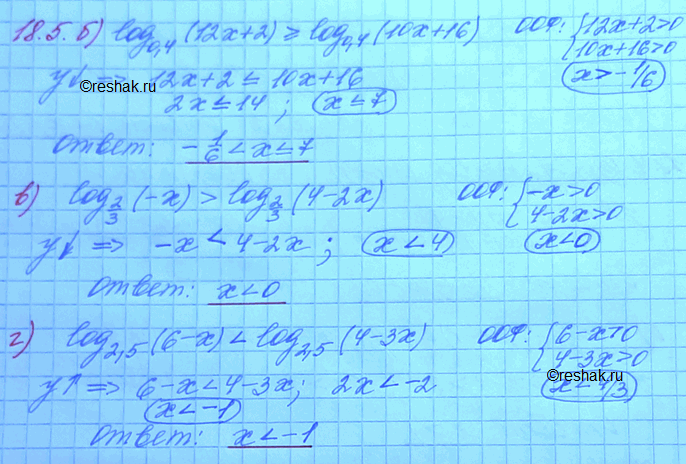 18.5. б) log₀,₄(12x+2) ≥ log₀,₄(10x+16) ООФ: {12x+2>0
10x+16>0
y↓ => 12x+2 ≤ 10x+16 x>-1/6
©reshak.ru
2x ≤ 14 ; x ≤ 7
ответ: -1/6 < x ≤ 7
в) log₂/₃(-x) > log₂/₃(4-2x) ООФ: {-x>0
4-2x>0
y↓ => -x < 4-2x ; x < 4 x<0
ответ: x<0
г) log₂,₅(6-x) < log₂,₅(4-3x) ООФ: {6-x>0
4-3x>0
y↑ => 6-x<4-3x; 2x<-2 x<4/3
©reshak.ru
x<-1
ответ: x<-1